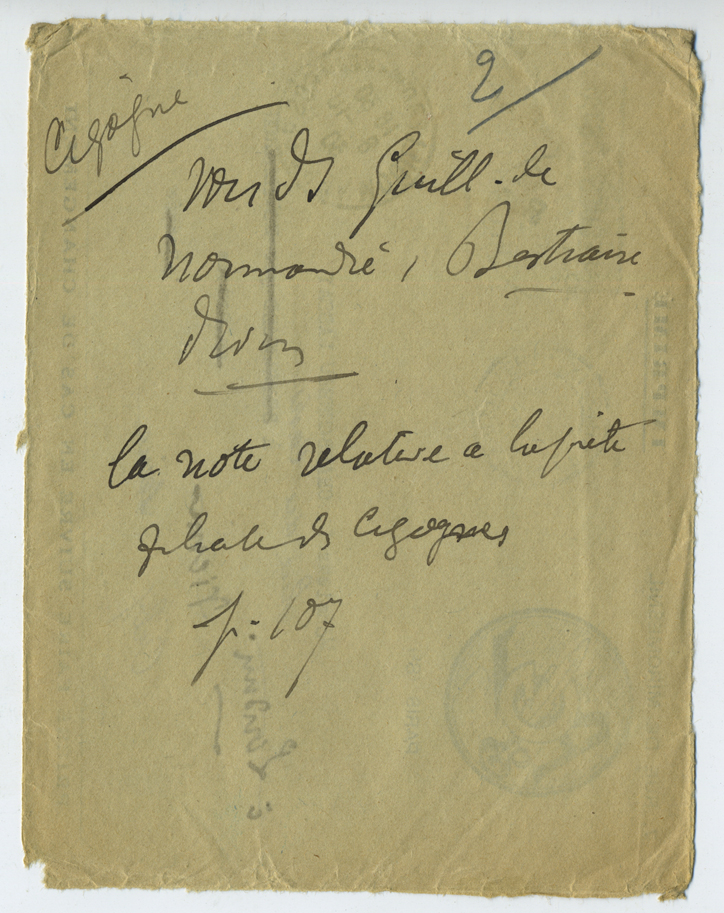 Cigogne
2
Voir ds Guill. de
Normandie, Bestiaire
divin
la note relative a la piété
filiale ds Cigognes
p. 107